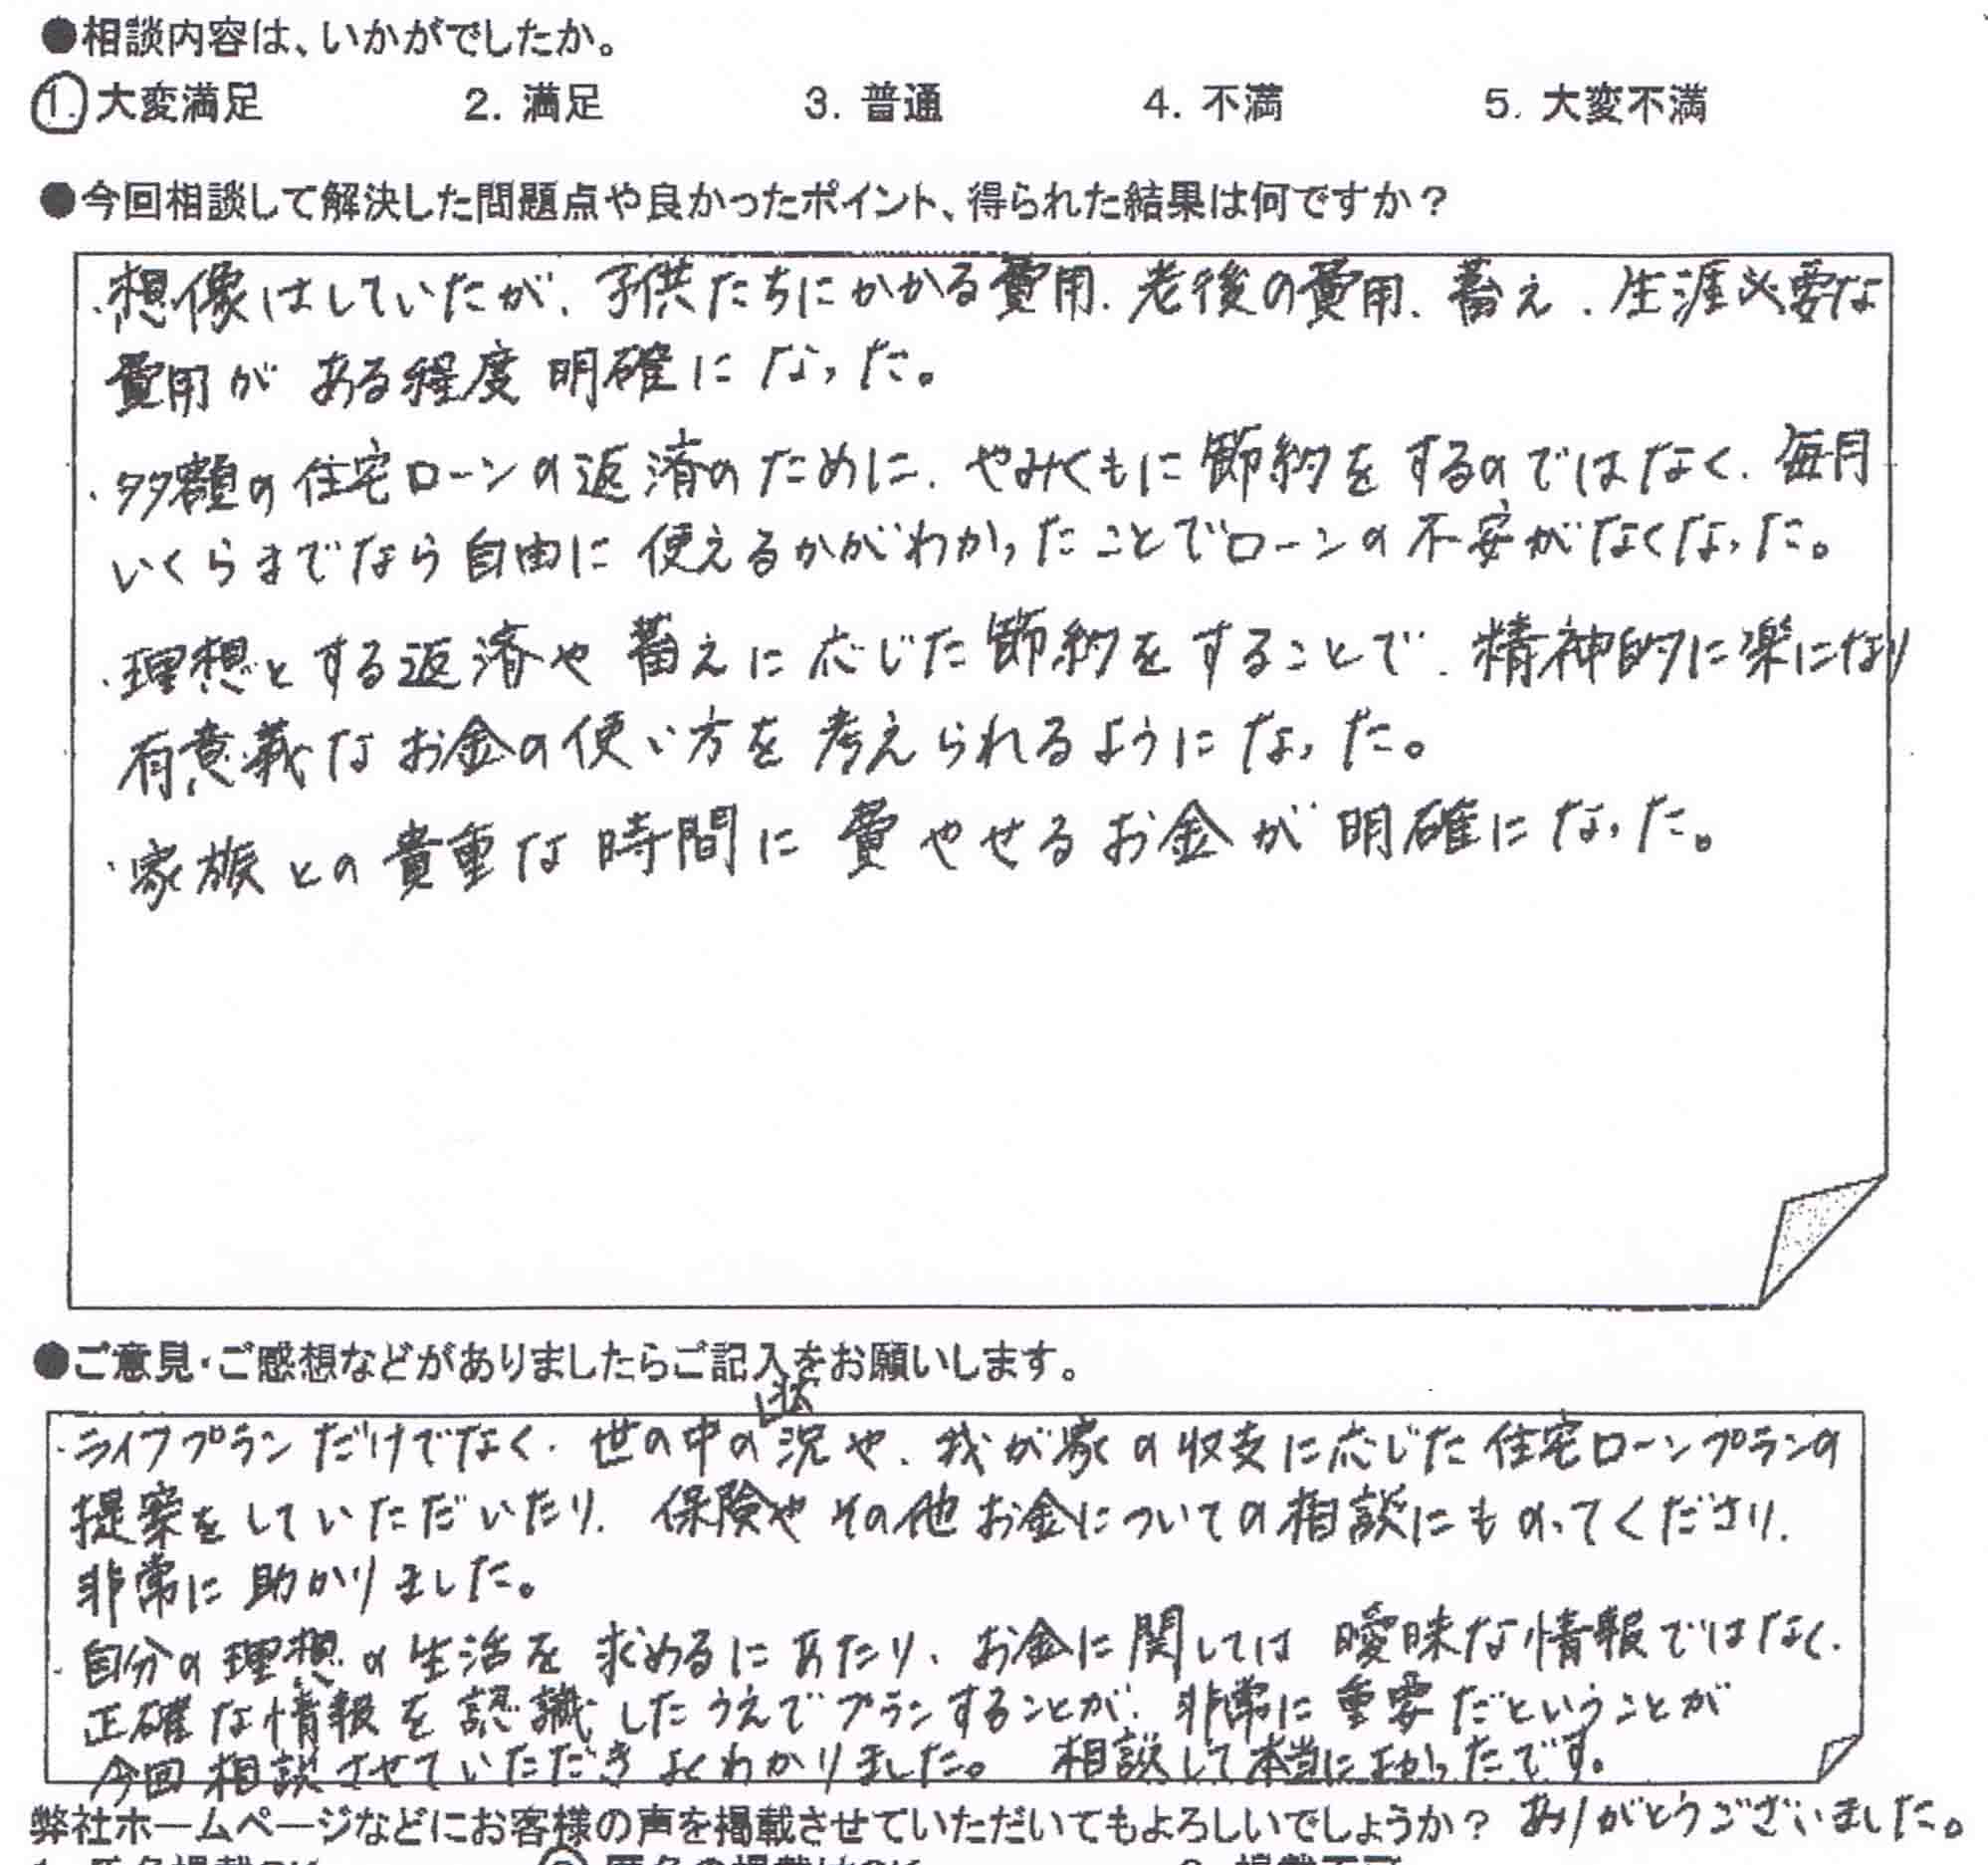 ●相談内容は、いかがでしたか。
1. 大変満足 2. 満足 3. 普通 4. 不満 5. 大変不満
●今回相談して解決した問題点や良かったポイント、得られた結果は何ですか？
・想像はしていたが、子供たちにかかる費用、老後の費用、蓄え、生涯必要な
費用がある程度明確になった。
・多額の住宅ローンの返済のために、やみくもに節約をするのではなく、毎月
いくらまでなら自由に使えるかがわかったことでローンの不安がなくなった。
・理想とする返済や蓄えに応じた節約をすることで、精神的に楽になり
有意義なお金の使い方を考えられるようになった。
・家族との貴重な時間に費やせるお金が明確になった。
●ご意見・ご感想などがありましたらご記入をお願いします。
・ライフプランだけでなく、世の中の状況や、我が家の収支に応じた住宅ローンプランの
提案をしていただいたり、保険やその他お金についての相談にものってくださり、
非常に助かりました。
・自分の理想の生活を求めるにあたり、お金に関しては曖昧な情報ではなく、
正確な情報を認識したうえでプランすることが、非常に重要だということが
今回相談させていただきよくわかりました。 相談して本当によかったです。
弊社ホームページなどにお客様の声を掲載させていただいてもよろしいでしょうか？ ありがとうございました。